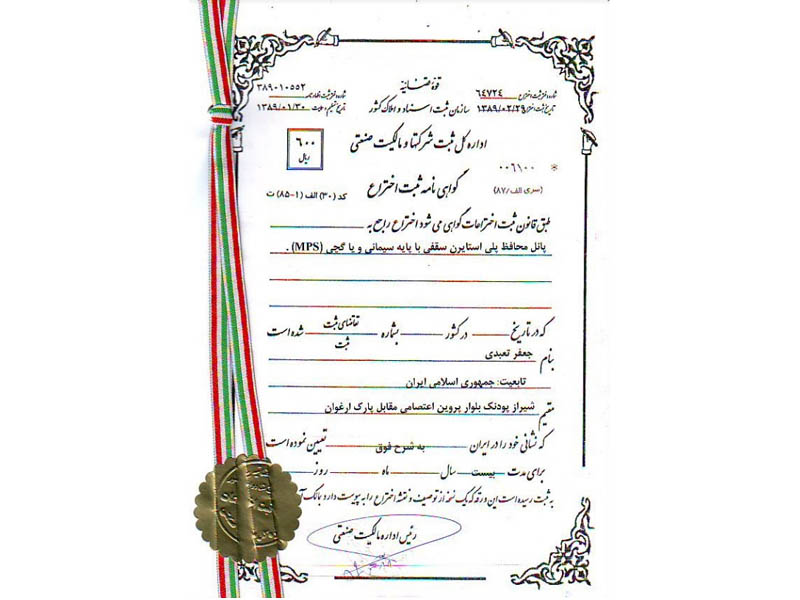 قوهٔ قضائیه
شماره دفتر ثبت اختراع ۶۴۷۲۴
تاریخ ثبت اختراع ۱۳۸۹/۰۲/۲۹
سازمان ثبت اسناد و املاک کشور
شماره دفتر ثبت اظهارنامه ۳۸۹۰۱۰۵۵۲
تاریخ تسلیم ۱۳۸۹/۰۱/۳۰
اداره کل ثبت شرکتها و مالکیت صنعتی
۶۰۰
ریال
* ۰۰۶۱۰۰
(سری الف/۸۷)
گواهی نامه ثبت اختراع
کد (۳۰) الف (۱-۸۵) ت
طبق قانون ثبت اختراعات گواهی می شود اختراع راجع به
پانل محافظ پلی استایرن سقفی با پایه سیمانی و یا گچی (MPS) .
که در تاریخ در کشور بشماره تقاضای ثبت شده است
ثبت
بنام جعفر تعبدی
تابعیت: جمهوری اسلامی ایران
مقیم شیراز پودنک بلوار پروین اعتصامی مقابل پارک ارغوان
که نشانی خود را در ایران به شرح فوق تعیین نموده است
برای مدت بیست سال ماه روز
به ثبت رسیده است این ورقه که یک نسخه از توصیف و نقشه اختراع را به پیوست دارد با نک
رئیس اداره مالکیت صنعتی